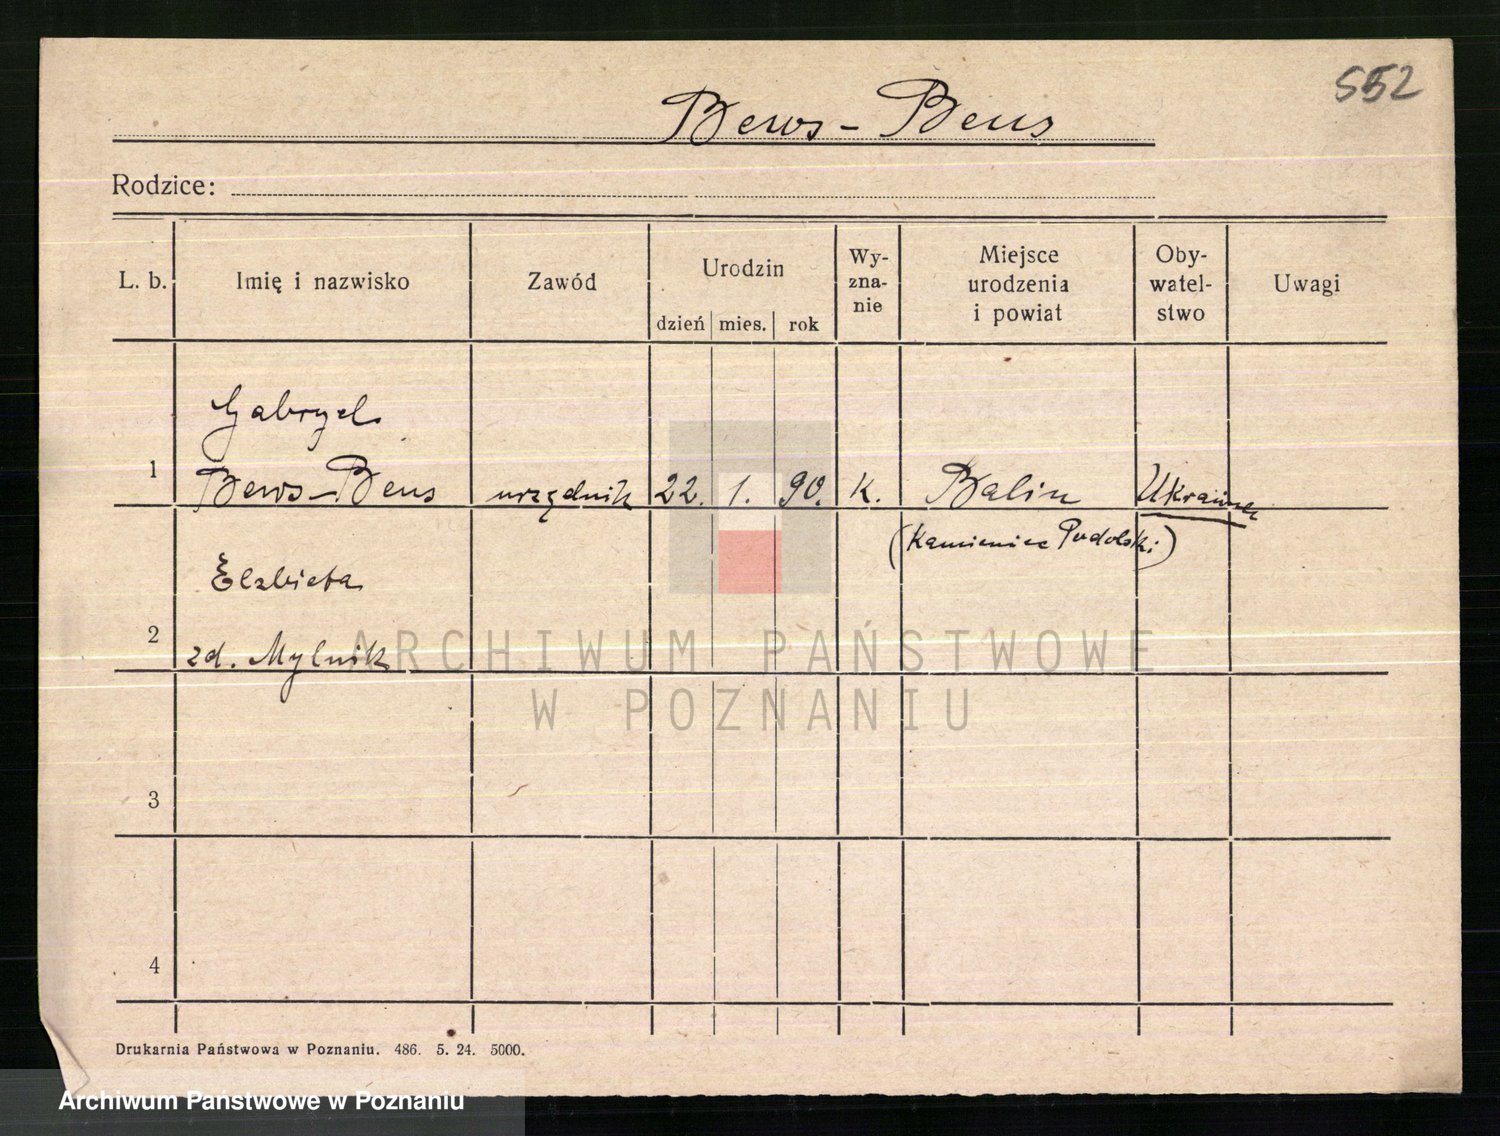 552
Bews-Beus
Rodzice:
L. b. Imię i nazwisko Zawód Urodzin dzień mies. rok Wy-zna-nie Miejsce urodzenia i powiat Oby-watel-stwo Uwagi
Gabryel
1 Bews-Beus urzędnik 22. 1. 90. K. Balin Ukrainer
(Kamieniec Podolski)
Elzbieta
2 zd. Mylnik
3
4
Drukarnia Państwowa w Poznaniu. 486. 5. 24. 5000.
ARCHIWUM PAŃSTWOWE
W POZNANIU
Archiwum Państwowe w Poznaniu